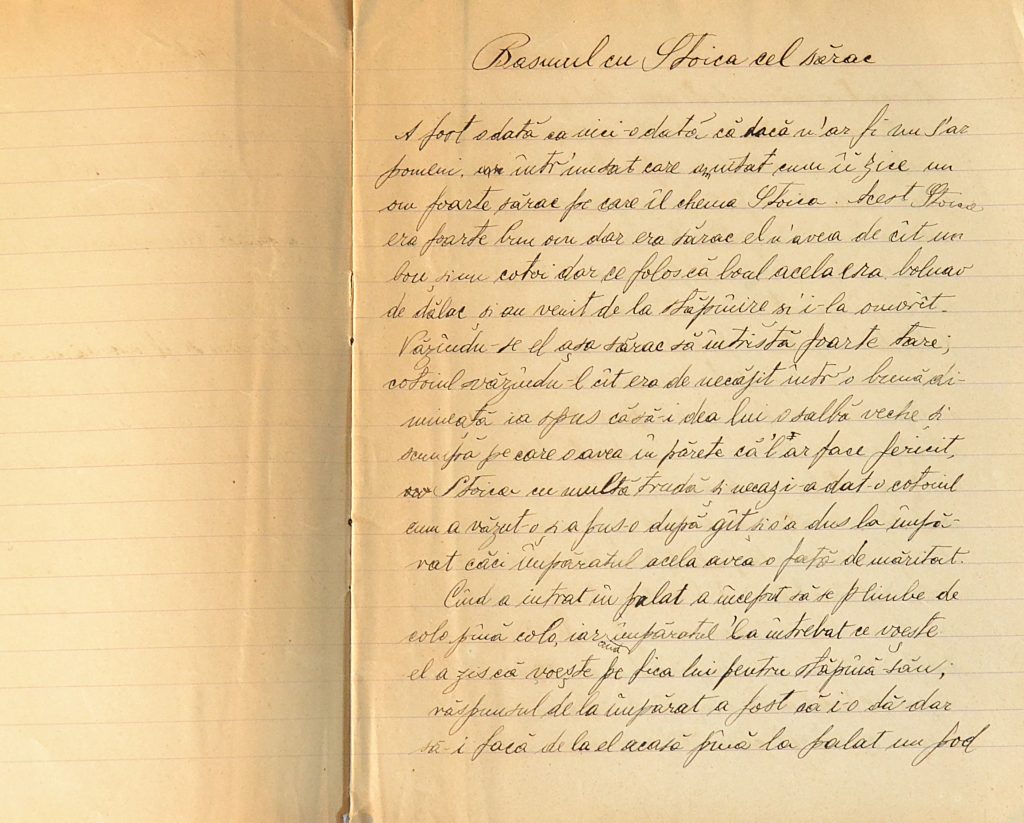 Basmul cu Stoica cel sărac
A fost odată ca nici-odată că dacă n'ar fi nu s'ar
pomeni, într'unsat care amsat cum îi zice un
om foarte sărac pe care îl chema Stoica. Acest Stoica
era foarte bun om dar era sărac el n'avea de cît un
bou și un cotoi dar ce folos că boul acela era bolnav
de dălac și au venit de la stăpînire și'i-la omorît.
Văzîndu-se el așa sărac să întristă foarte tare;
cotoiul văzîndu-l cît era de necăjit într'o bună di-
mineață ia spus că să-i dea lui o salbă veche și
scumpă pe care o avea în părete că'l'ar face fericit,
Stoica cu multă trudă și necaz i-a dat-o cotoiul
cum a văzut-o și a pus-o după gît și s'a dus la împă-
rat căci împăratul acela avea o fată de măritat.
Cînd a intrat în palat a început să se plimbe de
colo pînă colo, iar cînd împăratul l'a întrebat ce voește
el a zis că voește pe fica lui pentru stăpînă-său;
răspunsul de la împărat a fost că i-o dă dar
să-i facă de la el acasă pînă la palat un pod